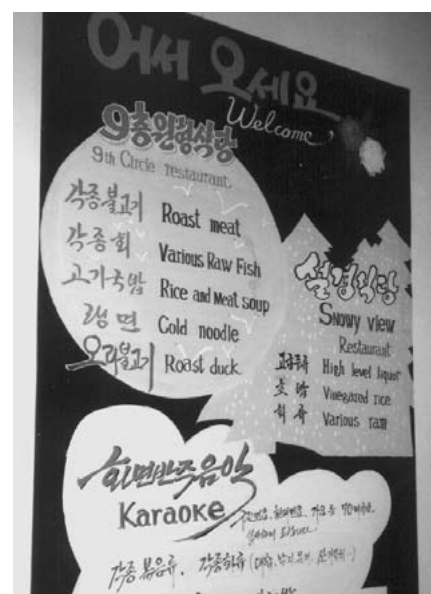 어서 오세요
Welcome
9층원형식당
9th Circle restaurant
각종불고기 Roast meat
각종회 Various Raw Fish
고기국밥 Rice and Meat soup
랭면 Cold noodle
오리불고기 Roast duck
설경식당
Snowy view
Restaurant
고급주류 High level liquor
초밥 Vinegared rice
회류 Various raw
화면반주음악
Karaoke
각종 볶음류, 각종회류